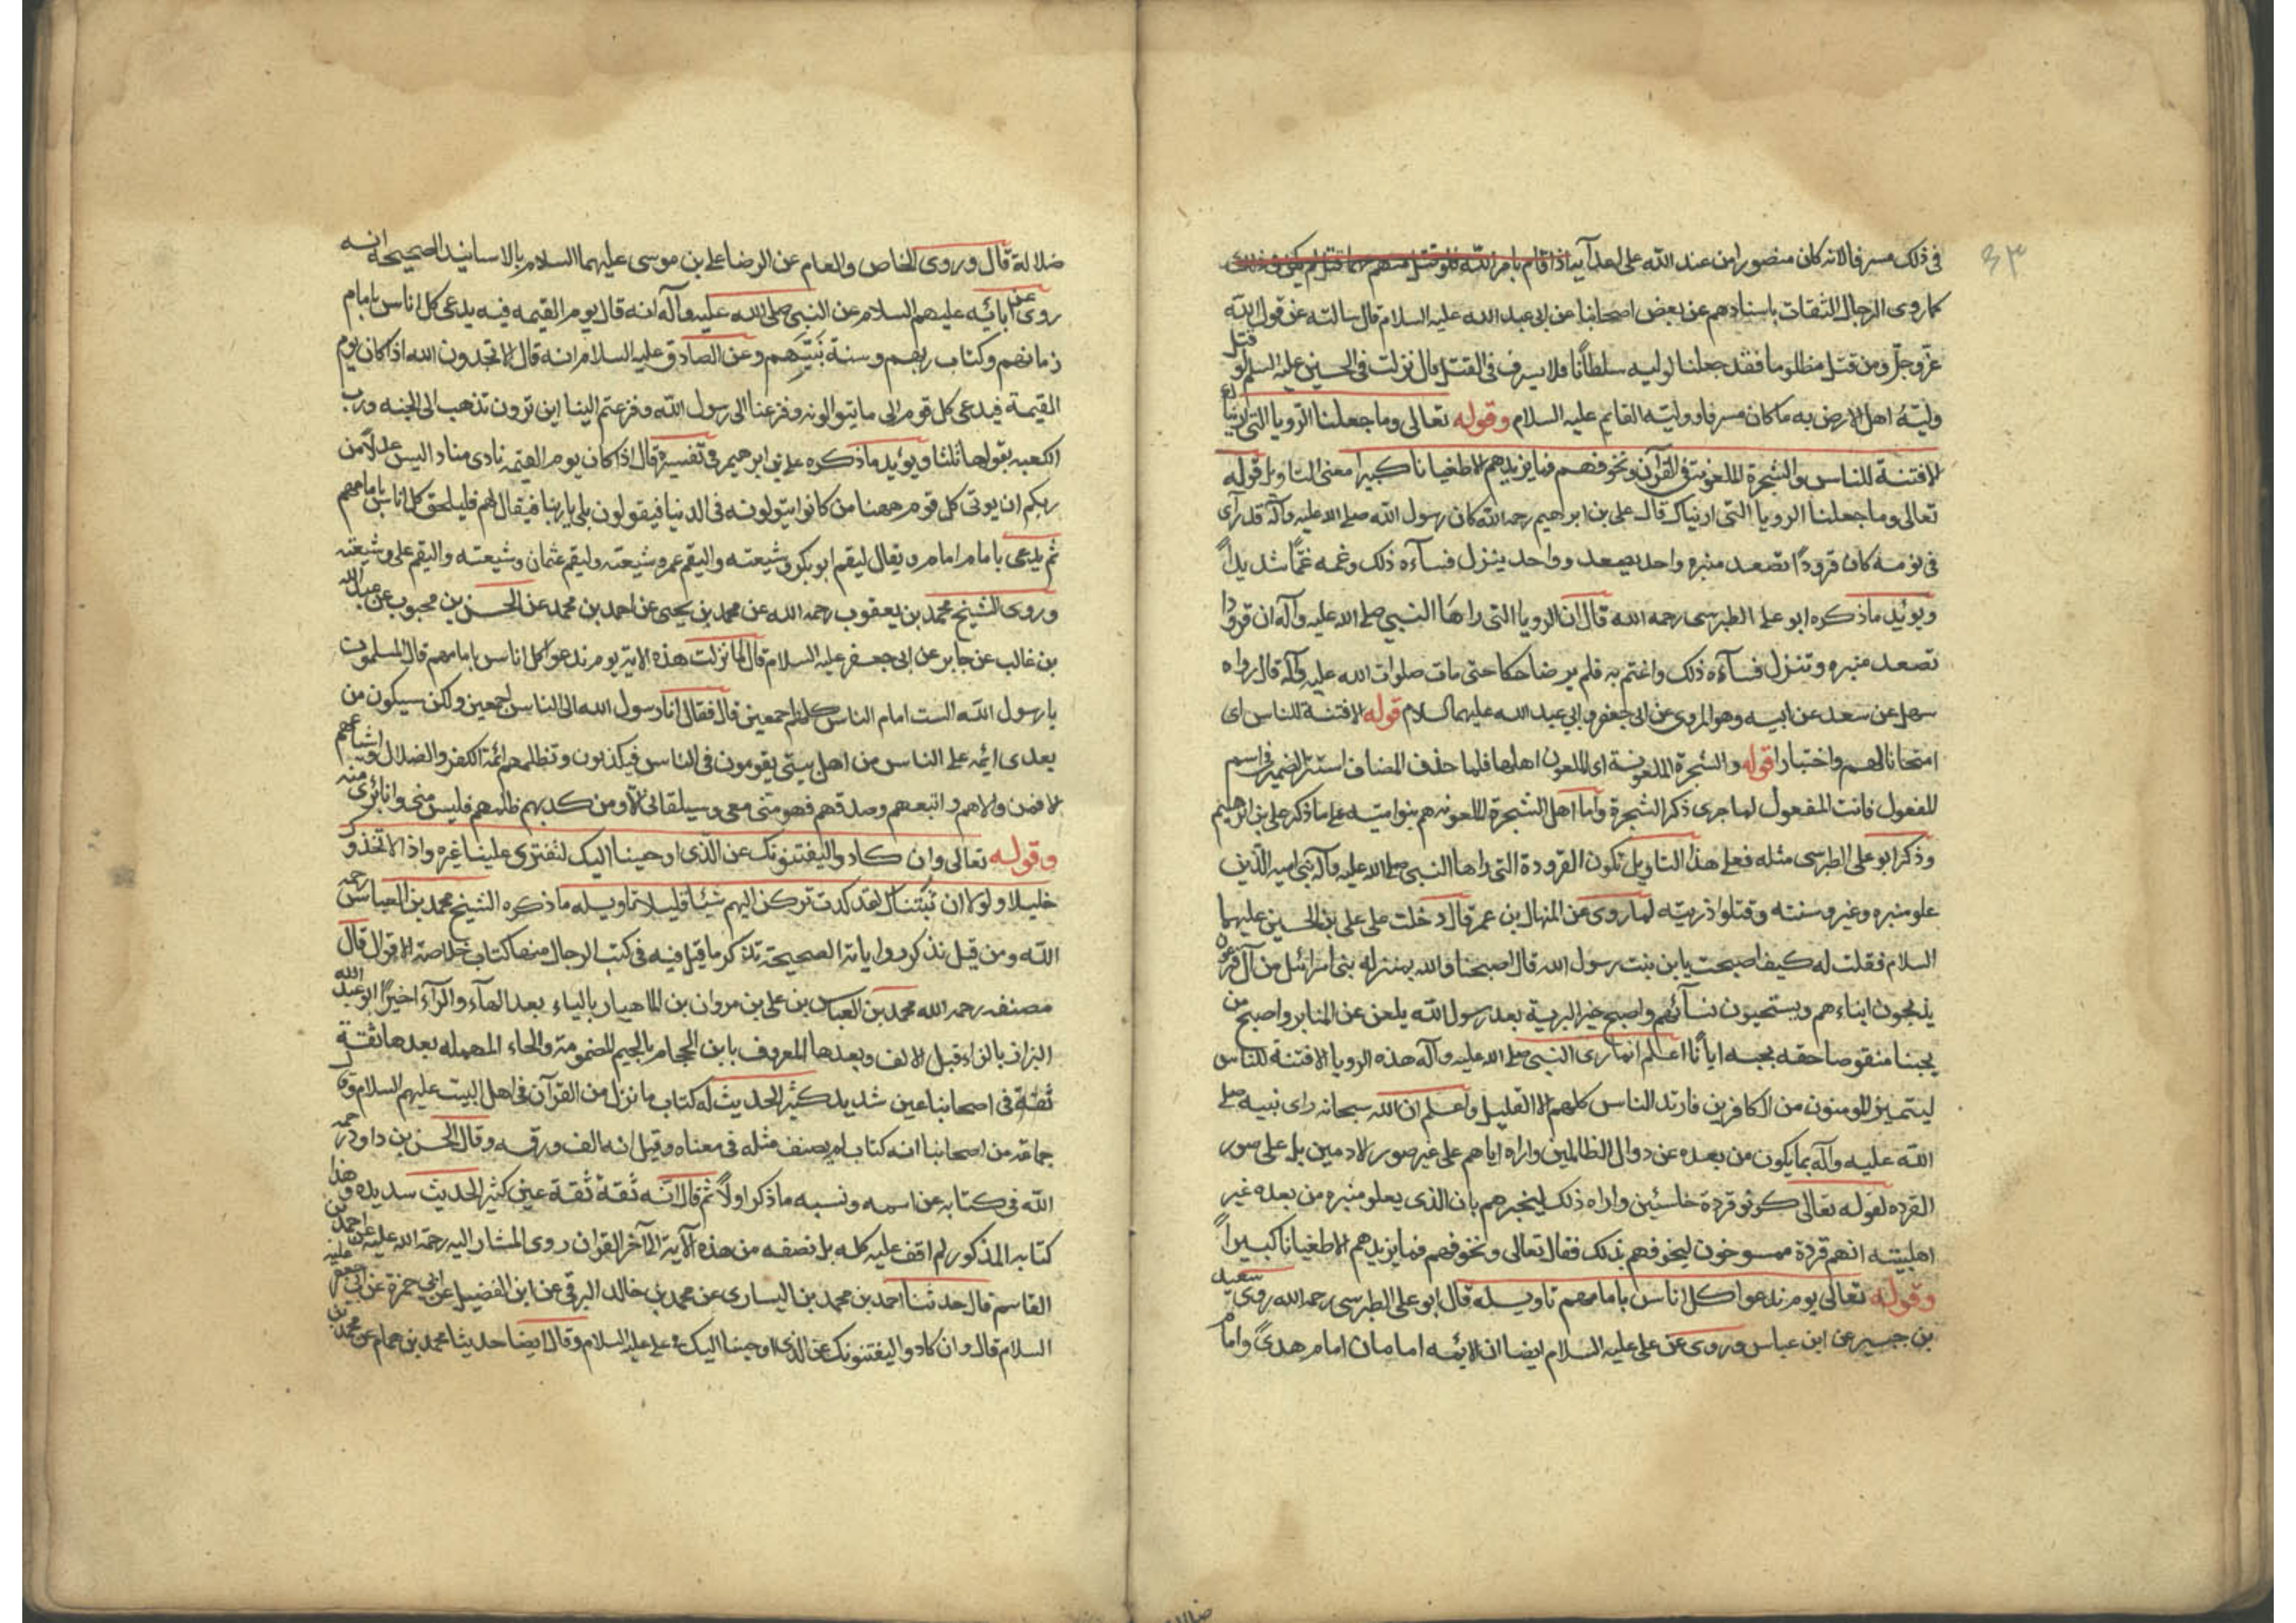 ٤٣
فى ذلك مسرفا لانه كان منصورا من عند الله على اعدآئه اذا قام بامر الله فلو قتل منهم مهما قتل لم يكن فى ذلك
كما روى الرجال الثقات باسنادهم عن بعض اصحابنا عن ابى عبد الله عليه السلام قال سالته عن قول الله
عز وجل ومن قتل مظلوما فقد جعلنا لوليه سلطانا فلا يسرف فى القتل قال نزلت فى الحسين عليه السلم لو قتل
وليّهُ اهل الارض به ما كان مسرفا ووليّه القايم عليه السلام وقوله تعالى وما جعلنا الرويا التى اريناك
الا فتنة للناس والشجرة الملعونة فى القرآن ونخوفهم فما يزيدهم الا طغيانا كبيرا معنى التاويل قوله
تعالى وما جعلنا الرويا التى اريناك قال على بن ابراهيم رحمه الله كان رسول الله صلى الله عليه وآله قد رآى
فى نومه كان قرودًا تصعد منبره واحد يصعد وواحد ينزل فسآءه ذلك وغمه غمًّا شديدًا
ويؤيد ما ذكره ابو على الطبرسى رحمه الله قال ان الرويا التى راها النبى صلى الله عليه وآله ان قرودا
تصعد منبره وتنزل فسآءه ذلك واغتم به فلم ير ضاحكا حتى مات صلوات الله عليه وآله قال رواه
سهل عن سعد عن ابيه وهو المروى عن ابى جعفر وابى عبد الله عليهما السلام قوله الا فتنة للناس اى
امتحانا لهم واختبارا قوله والشجرة الملعونة اى الملعون اهلها فلما حذف المضاف استتر الضمير فى اسم
المفعول فانث المفعول لما جرى ذكر الشجرة واما اهل الشجرة الملعونه هم بنو اميّه على ما ذكر على بن ابرهيم
وذكر ابو على الطبرسى مثله فعلى هذا التاويل تكون القرودة التى راها النبى صلى الله عليه وآله بنى اميه الذين
علو منبره وغيرو سنته وقتلوا ذريته لما روى عن المنهال بن عمر قال دخلت على على بن الحسين عليهما
السلام فقلت له كيف اصبحت يا بن بنت رسول الله قال اصبحنا والله بمنزله بنى اسرائيل من آل فرعون
يذبحون ابناءهم ويستحيون نسآئهم واصبح خير البرية بعد رسول الله يلعن على المنابر واصبح من
يحبنا منقوصا حقه بحبه ايانا اعلم انما راى النبى صلى الله عليه وآله هذه الرويا الا فتنة للناس
ليتميز المومنون من الكافرين فارتد الناس كلهم الا القليل واعلم ان الله سبحانه راى نبيه صلى
الله عليه وآله بما يكون من بعده عن دوال الظالمين واراه اياهم على غير صور الادمين بل على صور
القرده لقوله تعالى كونو قردة خاسئين واراه ذلك ليخبرهم بان الذى يعلو منبره من بعده غير
اهلبيته انهم قردة ممسوخون ليخوفهم بذلك فقال تعالى ونخوفهم فما يزيدهم الا طغيانا كبيرًا
وقوله تعالى يوم ندعوا كل اناس بامامهم تاويله قال ابو على الطبرسى رحمه الله روى سعيد
بن جبير عن ابن عباس وروى عن على عليه السلام ايضا ان الايمه امامان امام هدى وامام
ضلالة قال وروى الخاص والعام عن الرضا على بن موسى عليهما السلام بالاسانيد الصحيحة انه
روى عن آبائه عليهم السلام عن النبى صلى الله عليه وآله انه قال يوم القيمه فيه يدعى كل اناس بامام
زمانهم وكتاب ربهم وسنة نبيّهم وعن الصادق عليه السلام انه قال الا تحمدون الله اذا كان يوم
القيمة فيدعى كل قوم الى ما يتوالونه وفزعنا الى رسول الله وفزعتم الينا اين ترون تذهب الى الجنه ورب
الكعبه يقولها ثلثا ويؤيد ما ذكره على بن ابرهيم فى تفسيره قال اذا كان يوم القيمه نادى مناد اليس عدلًا من
ربكم ان يوتى كل قوم ههنا من كانوا يتولونه فى الدنيا فيقولون بلى يا ربنا فيقال لهم فليلحق كل اناس بامامهم
ثم يدعى بامام امام ويقال ليقم ابو بكر وشيعته واليقم عمر وشيعته وليقم عثمان وشيعته واليقم على وشيعته
وروى الشيخ محمد بن يعقوب رحمه الله عن محمد بن يحيى عن احمد بن محمد عن الحسن بن محبوب عن عبد الله
بن غالب عن جابر عن ابى جعفر عليه السلام قال لما نزلت هذه الاية يوم ندعوا كل اناس بامامهم قال المسلمون
يا رسول الله الست امام الناس كلهم اجمعين قال فقال انا رسول الله الى الناس اجمعين ولكن سيكون من
بعدى ايمه على الناس من اهل بيتى يقومون فى الناس فيكذبون وتظلمهم ائمة الكفر والضلال واشياعهم
الا فمن والاهم واتبعهم وصدقهم فهو منى معى وسيلقانى الا ومن كذبهم ظلمهم فليس منى وانا برى منه
وقوله تعالى وان كادو اليفتنونك عن الذى اوحينا اليك لتفترى علينا غيره واذا لاتخذوك
خليلا ولولا ان ثبتناك لقد كدت تركن اليهم شيئا قليلا تاويله ما ذكره الشيخ محمد بن العباس رحمه
الله ومن قبل نذكر رواياته الصحيحة تذكر ما قيل فيه فى كتب الرجال منها كتاب خلاصة الاقوال قال
مصنفه رحمه الله محمد بن العباس بن على بن مروان بن الماهيار بالياء بعد الهآء والرآء اخيرًا ابو عبد الله
البزاز بالزاء قبل الالف وبعدها المعروف بابن الحجام بالجيم المضمومة والحاء المهمله بعدها ثقة
ثقة فى اصحابنا عين شديد كثير الحديث له كتاب ما نزل من القرآن فى اهل البيت عليهم السلام وقال
جماعة من اصحابنا انه كتاب لم يصنف مثله فى معناه وقيل انه الف ورقه وقال الحسن بن داود رحمه
الله فى كتابه عن اسمه ونسبه ما ذكر اولًا ثم قال انّه ثقة ثقة عين كثير الحديث سديده وهذا
كتابه المذكور لم اقف عليه كله بل نصفه من هذه الآية الى آخر القران روى المشار اليه رحمة الله عليه عن احمد بن
القاسم قال حدثنا احمد بن محمد بن اليسارى عن محمد بن خالد البرقى عن ابن الفضيل عن ابى حمزة عن ابى جعفر عليه
السلام قال وان كادو اليفتنونك عن الذى اوحينا اليك فى على عليه السلام وقال ايضا حديثا محمد بن همام عن محمد بن